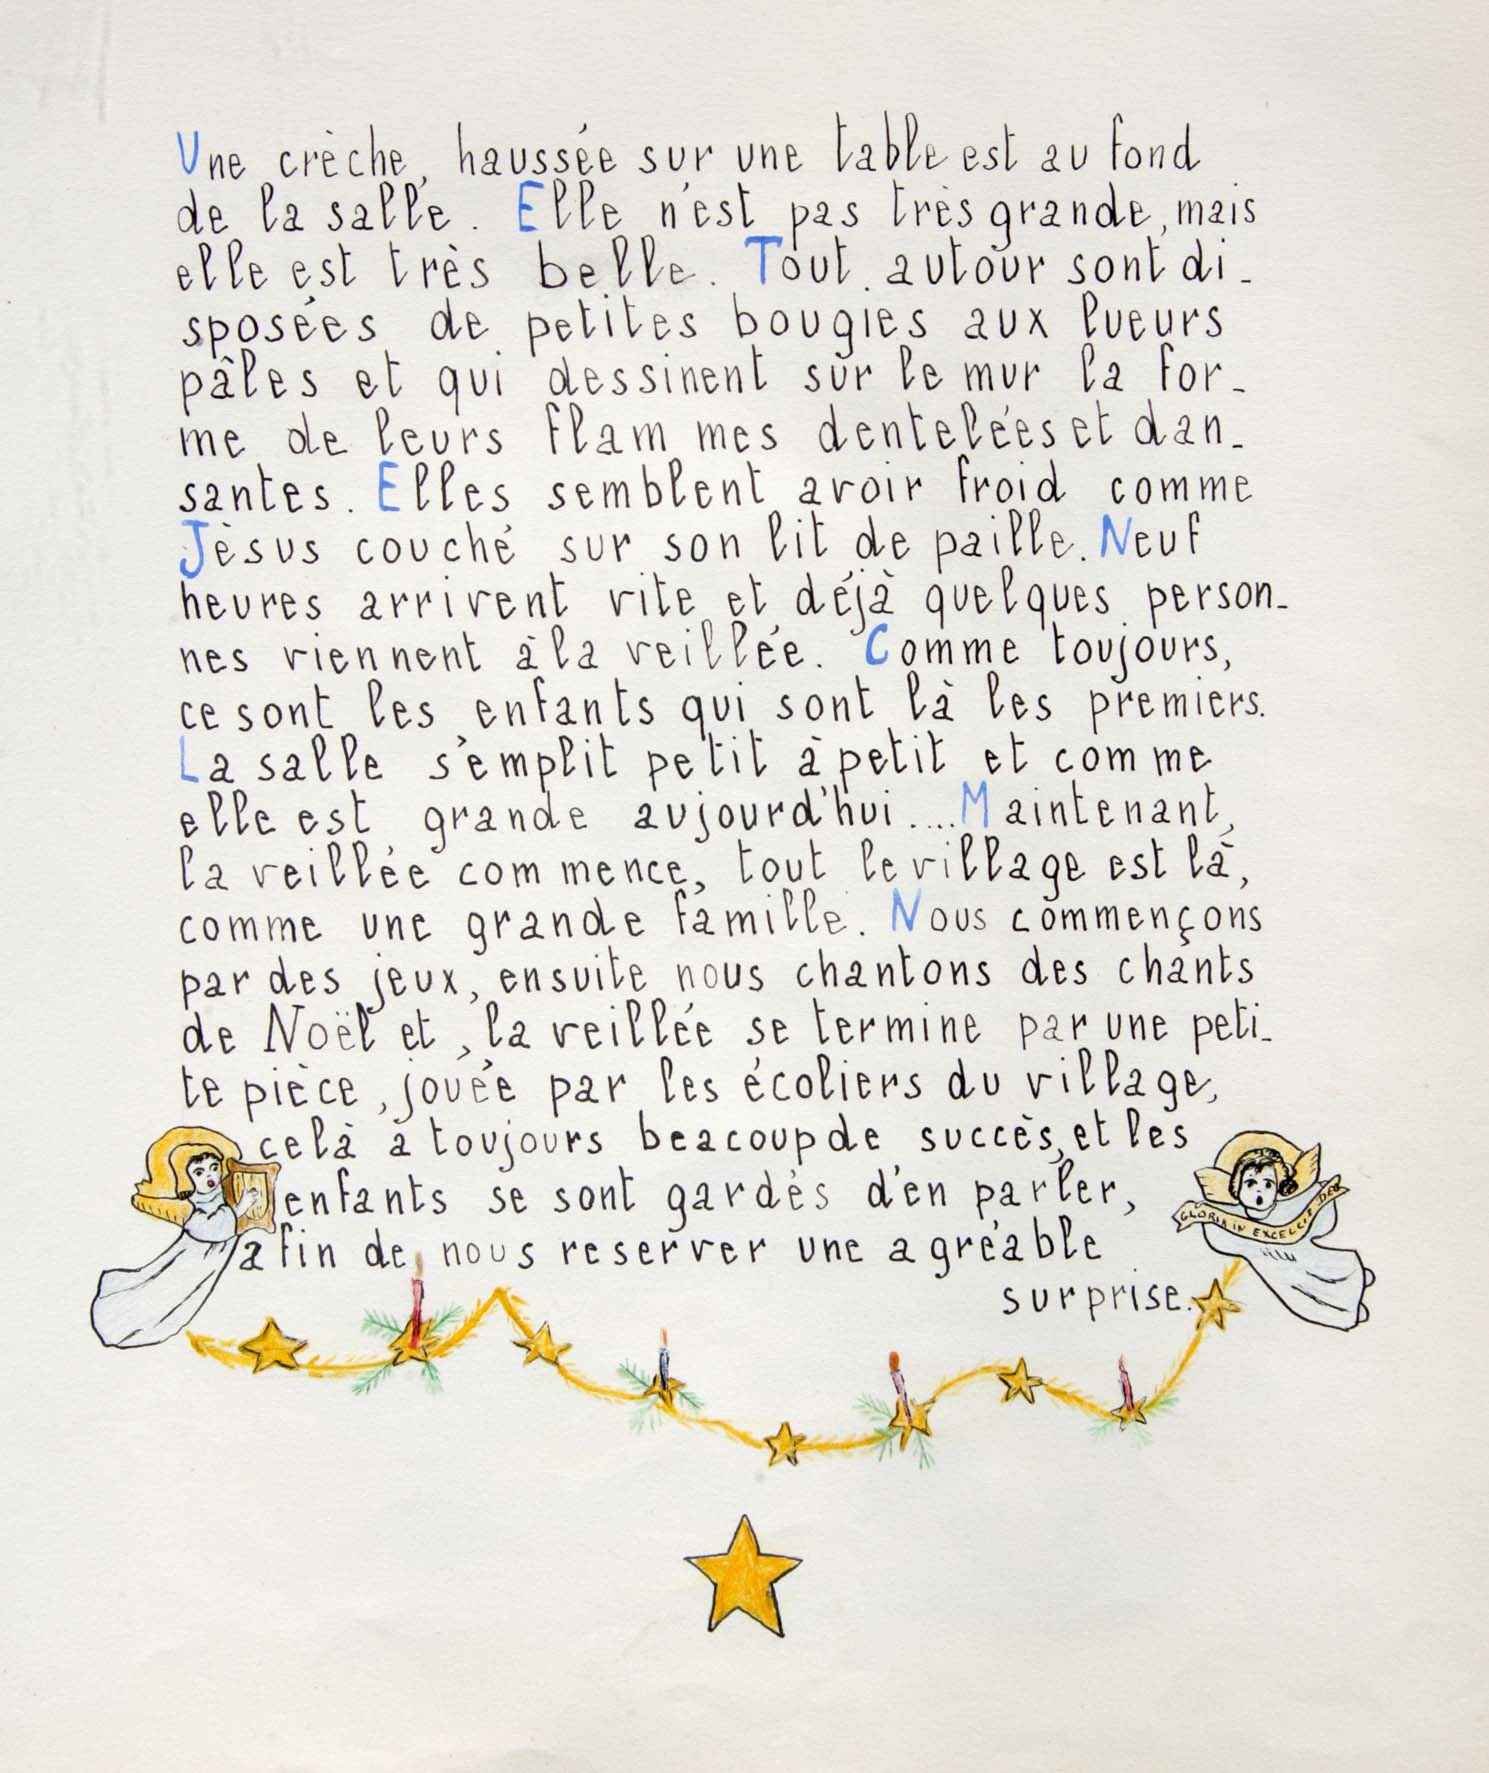 Une crèche, haussée sur une table est au fond
de la salle. Elle n'est pas très grande, mais
elle est très belle. Tout autour sont di-
sposées de petites bougies aux lueurs
pâles et qui dessinent sur le mur la for-
me de leurs flammes dentelées et dan-
santes. Elles semblent avoir froid comme
Jèsus couché sur son lit de paille. Neuf
heures arrivent vite et déjà quelques person-
nes viennent à la veillée. Comme toujours,
ce sont les enfants qui sont là les premiers.
La salle s'emplit petit à petit et comme
elle est grande aujourd'hui .... Maintenant,
la veillée commence, tout le village est là,
comme une grande famille. Nous commençons
par des jeux, ensuite nous chantons des chants
de Noël et, la veillée se termine par une peti-
te pièce, jouée par les écoliers du village,
celà à toujours beacoup de succès, et les
enfants se sont gardés d'en parler,
afin de nous reserver une agréable
surprise.
GLORIA IN EXCELCIS DEO